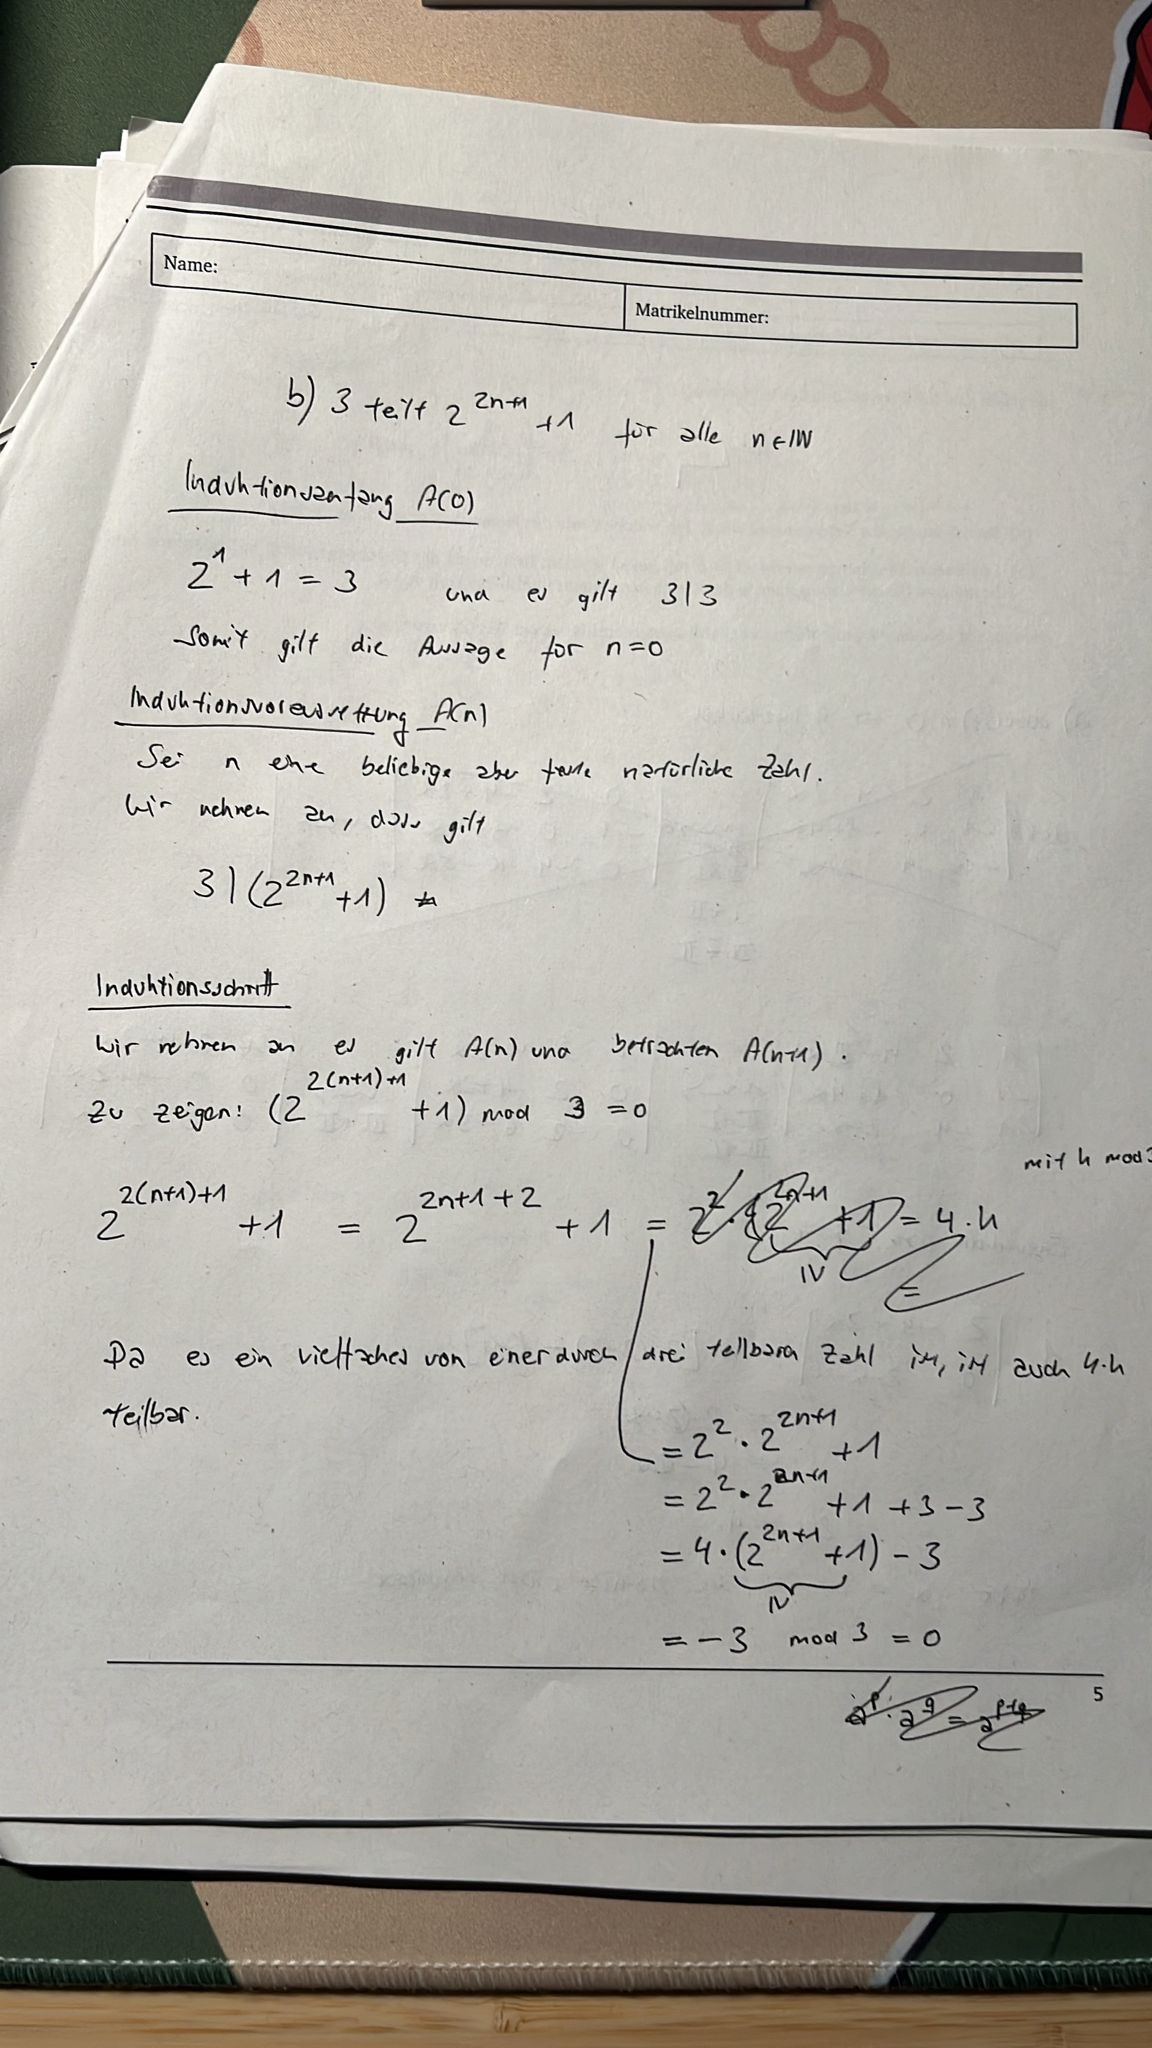 Name:
Matrikelnummer:
b) 3 teilt 2^{2n+1} +1 für alle n∈ℕ
Induktionsanfang A(0)
2^1 + 1 = 3 und es gilt 3|3
Somit gilt die Aussage für n=0
Induktionsvoraussetzung A(n)
Sei n eine beliebige aber feste natürliche Zahl.
Wir nehmen an, dass gilt
3 | (2^{2n+1} +1)
Induktionsschritt
Wir nehmen an es gilt A(n) und betrachten A(n+1).
Zu zeigen: (2^{2(n+1)+1} +1) mod 3 = 0
mit k mod 3
2^{2(n+1)+1} +1 = 2^{2n+1+2} +1 = 2^2 · (2^{2n+1} +1) = 4·k
IV
=
Da es ein Vielfaches von einer durch drei teilbaren Zahl ist, ist auch 4·k
teilbar.
= 2^2 · 2^{2n+1} +1
= 2^2 · 2^{2n+1} +1 +3 -3
= 4·(2^{2n+1} +1) - 3
IV
= -3 mod 3 = 0
5
2^p · 2^q = 2^{p+q}